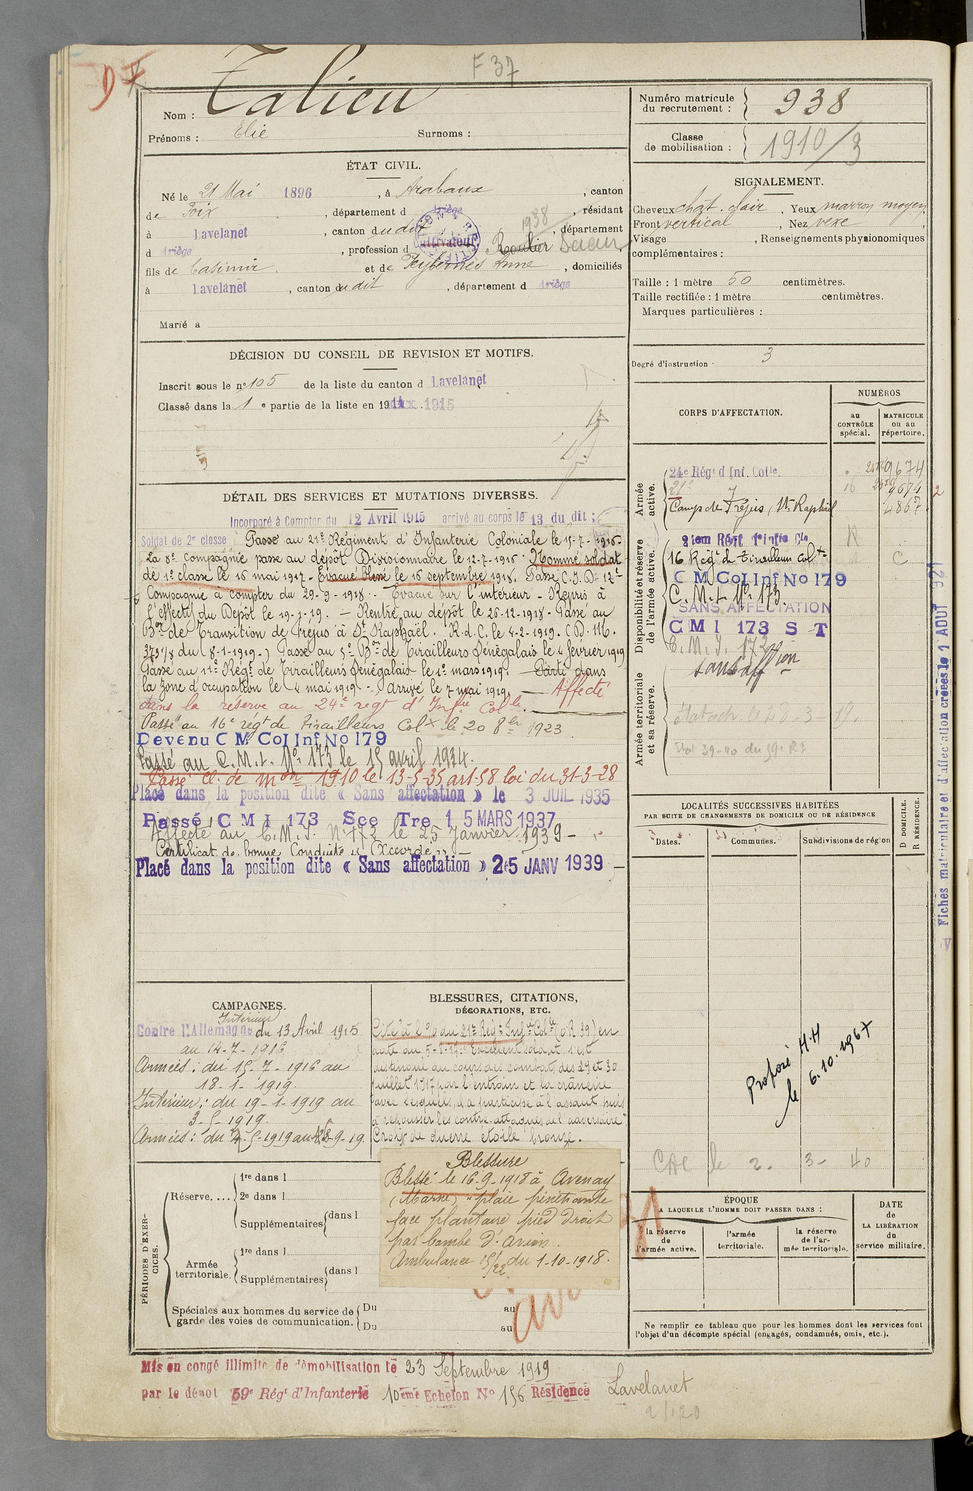 F 37
Nom : Talieu
Prénoms : Elie Surnoms :
Numéro matricule du recrutement : 938
Classe de mobilisation : 1910/3
ÉTAT CIVIL.
Né le 21 Mai 1896, à Arabaux, canton
de Foix, département d Ariège, résidant
à Lavelanet, canton dudit, département
d Ariège, profession d cultivateur Roulier 1938 Scieur
fils de Casimir et de Anne, domiciliés
à Lavelanet, canton dudit, département d Ariège
Marié à
SIGNALEMENT.
Cheveux chat. clair, Yeux marron moyen
Front vertical, Nez vexe
Visage , Renseignements physionomiques
complémentaires :
Taille : 1 mètre 50 centimètres.
Taille rectifiée : 1 mètre centimètres.
Marques particulières :
Degré d'instruction : 3
DÉCISION DU CONSEIL DE REVISION ET MOTIFS.
Inscrit sous le n° 105 de la liste du canton d Lavelanet
Classé dans la 1e partie de la liste en 1915
DÉTAIL DES SERVICES ET MUTATIONS DIVERSES.
Incorporé à Compter du 12 Avril 1915 arrivé au corps le 13 du dit ;
Soldat de 2e classe Passé au 21e Régiment d'Infanterie Coloniale le 15-7-1916
La 8e Compagnie passe au dépôt Divisionnaire le 12-7-1916 Nommé soldat
de 1e classe le 16 mai 1917 - Evacué blessé le 16 septembre 1918. Passé C.I.D. 12e
Compagnie à compter du 29-9-1918 - Evacué sur l'intérieur - Repris à
l'effectif du Dépôt le 19-1-19. — Rentré au dépôt le 26-12-1918 - Passé au
Bon de Transition de Fréjus à St Raphaël. R. d. C. le 4-2-1919. (D. M.
du (8-1-1919-) Passé au 5e Bon de Tirailleurs Sénégalais le 4 février 1919
Passé au 11e Régt de Tirailleurs Sénégalais le 1e mars 1919. Parti dans
la zone d'occupation le 4 mai 1919 - Arrivé le 7 mai 1919. — Affecté
dans la réserve au 24e regt d'Infie Colle
Passé au 16e regt de Tirailleurs Colx le 20 8bre 1923
Devenu C M Col Inf No 179
Passé au C.M.I. No 173 le 15 avril 1934.
Passé cl. de mon 1910 le 13-5-35 art 58 loi du 31-3-28
Placé dans la position dite « Sans affectation » le 3 JUIL 1935
Passé C M I 173 Sec Tre 15 MARS 1937
Affecté au C.M.I. No 172 le 25 Janvier 1939 -
Certificat de bonne Conduite "Accordé"
Placé dans la position dite « Sans affectation » 25 JANV 1939
CORPS D'AFFECTATION.
NUMÉROS
au CONTRÔLE spécial.
MATRICULE ou au répertoire.
Armée active.
24e Régt d Inf. Colle.
21e
Camp de Fréjus, St Raphaël
9674
9674
4867
Disponibilité et réserve de l'armée active.
21em Régt
16 Régt de Tirailleurs Colx
C M Col Inf No 179
C. M. I. No 173
SANS AFFECTATION
C M I 173 S T
C. M. I. 172
sans affion
Armée territoriale et sa réserve.
Fiches matriculaire et d'affectation créées le 1 AOUT 1921
LOCALITÉS SUCCESSIVES HABITÉES
PAR SUITE DE CHANGEMENTS DE DOMICILE OU DE RÉSIDENCE
Dates.
Communes.
Subdivisions de région
D DOMICILE.
R RÉSIDENCE.
Proposé H.H
le 6.10.1967
CAMPAGNES.
Contre l'Allemagne Intérieur du 13 Avril 1915
au 14-7-1916
Armées : du 15-7-1916 au
18-1-1919.
Intérieur : du 19-1-1919 au
3-5-1919.
Armées : du 4-5-1919 au 23-9-19
BLESSURES, CITATIONS,
DÉCORATIONS, ETC.
Cité à l'o du 21e Régt Infie Colle (O.R. 29) en
date du Excellent soldat, s'est
distingué au cours des combats des 29 et 30
juillet 1917 par l'entrain et la crânerie
avec lesquels il a participé à l'assaut puis
à repousser les contre-attaques de l'adversaire
Croix de guerre étoile bronze.
Blessure
Blessé le 16-9-1918 à Avenay
(Marne) "plaie pénétrante
face plantaire pied droit
par bombe d'avion.
Ambulance 15/22 du 1-10-1918.
PÉRIODES D'EXERCICES.
Réserve.... 1re dans l
2e dans l
Supplémentaires dans l
Armée territoriale. 1re dans l
Supplémentaires dans l
Spéciales aux hommes du service de garde des voies de communication. Du au
Du au
ÉPOQUE
A LAQUELLE L'HOMME DOIT PASSER DANS :
la réserve de l'armée active.
l'armée territoriale.
la réserve de l'armée territoriale.
DATE de LA LIBÉRATION du service militaire.
Ne remplir ce tableau que pour les hommes dont les services font
l'objet d'un décompte spécial (engagés, condamnés, omis, etc.).
Mis en congé illimité de démobilisation le 23 Septembre 1919
par le dépôt 59e Régt d'Infanterie 10eme Echelon No 156 Résidence Lavelanet